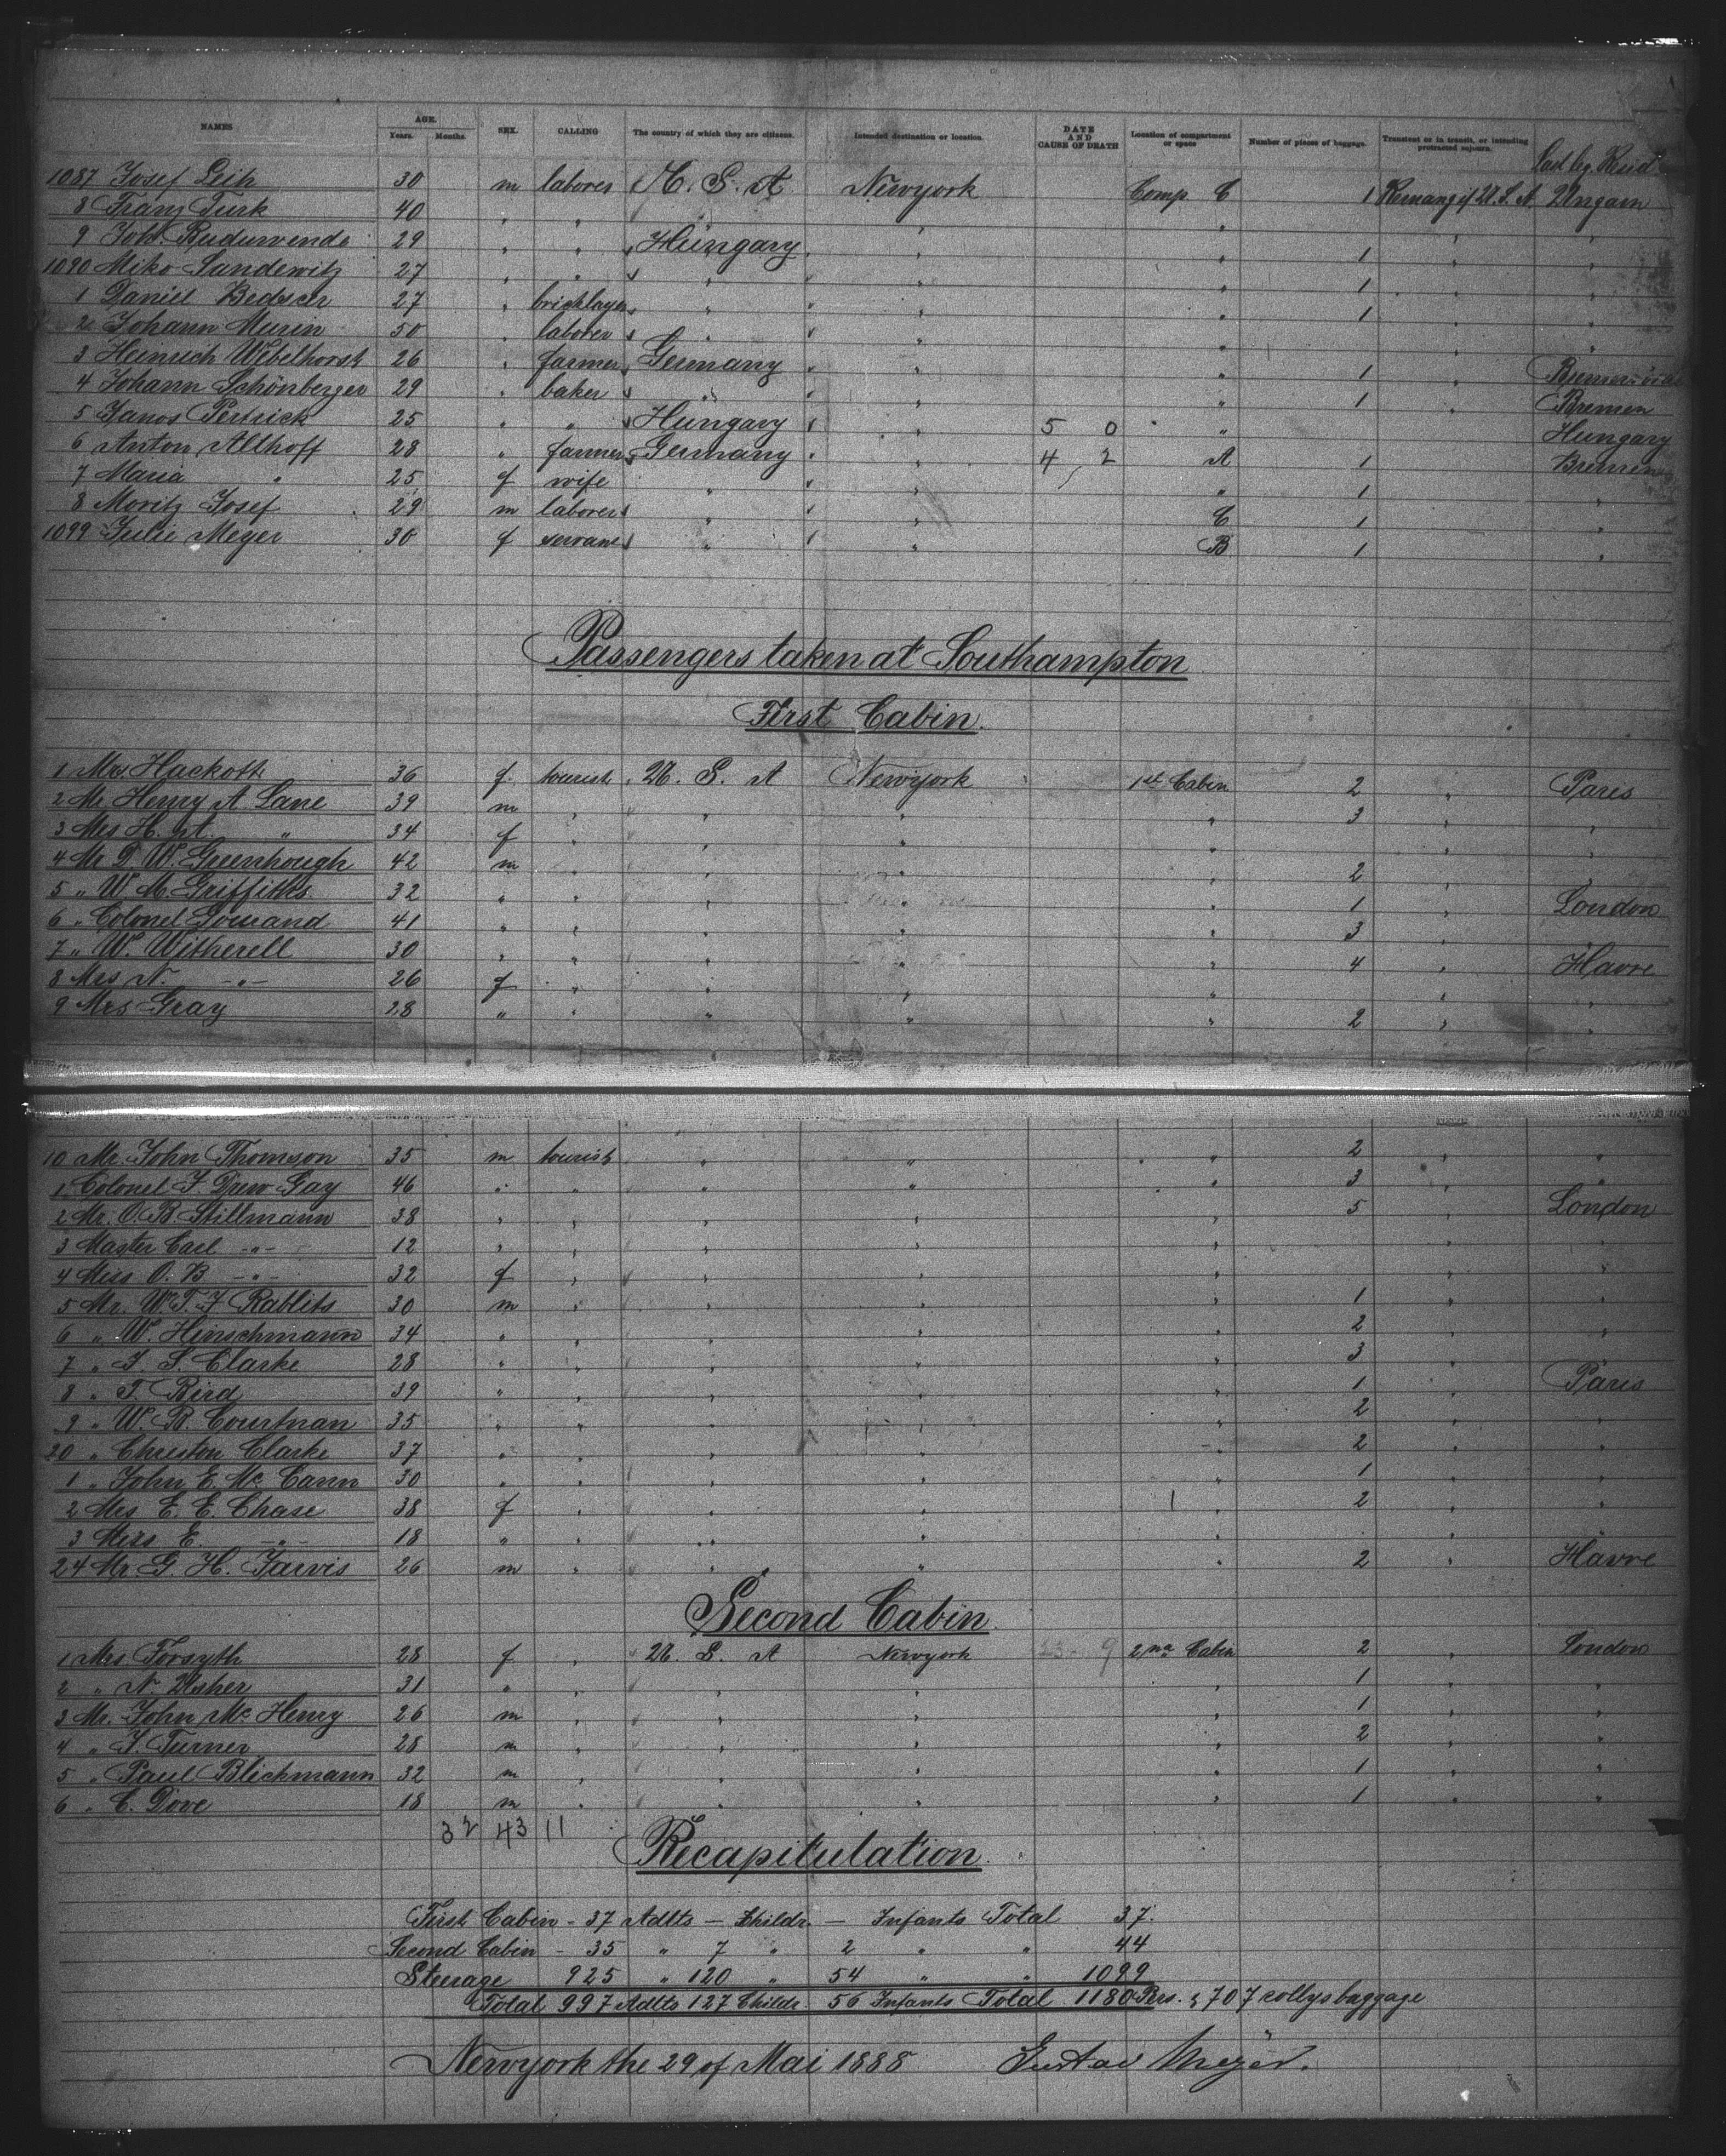 NAMES AGE. Years. Months. SEX. CALLING The country of which they are citizens. Intended destination or location. DATE AND CAUSE OF DEATH Location of compartment or space Number of pieces of baggage. Transient or in transit, or intending protracted sojourn.
1087 Josef Leih 30 m laborer U. S. A Newyork Comp. C 1 U.S.A. Ungarn
8 Franz Turk 40 " " "
9 Joh. 29 " " Hungary " " 1 " "
1090 Miko Sandewitz 27 " " " " " 1 " "
1 Daniel 27 " bricklayer " " " 1 " "
2 Johann Murin 50 " laborer " " " " "
3 Heinrich Webelhorst 26 " farmer Germany " " 1 "
4 Johann Schönberger 29 " baker " " " 1 " Bremen
5 Janos Petrick 25 " " Hungary " 5 0 " Hungary
6 Anton Althoff 28 " farmer Germany " 4, 2 A 1 Bremen
7 Maria " 25 f wife " " " 1 "
8 Moritz Josef 29 m laborer " " C 1 "
1099 Julie Meyer 30 f servant " " B 1 "
Passengers taken at Southampton
First Cabin.
1 Mrs. Hackoth 36 f. tourist U. S. A Newyork 1st Cabin 2 " Paris
2 Mr Henry A Lane 39 m " " " " 3 " "
3 Mrs H. A. " 34 f " " " " " "
4 Mr D. W. Greenhough 42 m " " " " 2 " "
5 " W. M. Griffiths. 32 " " " " " 1 " London
6 " Colonel 41 " " " " " 3 "
7 " W. Witherell 30 " " " " " 4 " Havre
8 Mrs N. -"- 26 f " " " " " "
9 Mrs Gray 28 " " " " " 2 " "
10 Mr. John Thomson 35 m tourist " " " 2 " "
1 Colonel J. Drew Gay 46 " " " " " 3 " "
2 Mr. O. B Stillmann 38 " " " " " 5 " London
3 Master Carl -"- 12 " " " " " " "
4 Miss O. B -"- 32 f " " " " " "
5 Mr. W. T. J Rabbits 30 m " " " " 1 " "
6 " W. Hinschmann 34 " " " " " 2 " "
7 " J. S. Clarke 28 " " " " " 3 "
8 " T. Bird 39 " " " " " 1 " Paris
9 " W. B. Courtnan 35 " " " " " 2 " "
20 " Chreston Clarke 37 " " " " " 2 " "
1 " John E. Mc Cann 30 " " " " " 1 " "
2 Mrs E. E. Chase 38 f " " " 1 " 2 " "
3 Miss E. -"- 18 " " " " " " "
24 Mr. G. H. Jarvis 26 m " " " " 2 " Havre
Second Cabin
1 Mrs. Forsyth 28 f " U. S. A Newyork 23 - 9 2nd Cabin 2 " London
2 " N. Usher 31 " " " " " 1 " "
3 Mr. John Mc Henry 26 m " " " " 1 " "
4 " J. Turner 28 m " " " " 2 " "
5 " Paul Blichmann 32 m " " " " 1 " "
6 " C. Dove 18 m " " " " 1 " "
32 43 11
Recapitulation
First Cabin - 37 Adlts - Childr. - Infants Total 37.
Second Cabin - 35 " 7 " 2 " " 44
Steerage 925 " 120 " 54 " " 1099
Total 997 Adlts 127 Childr. 56 Infants Total 1180 Prs. & 707 collys baggage
Newyork the 29 of Mai 1888 Gustav Meyer.